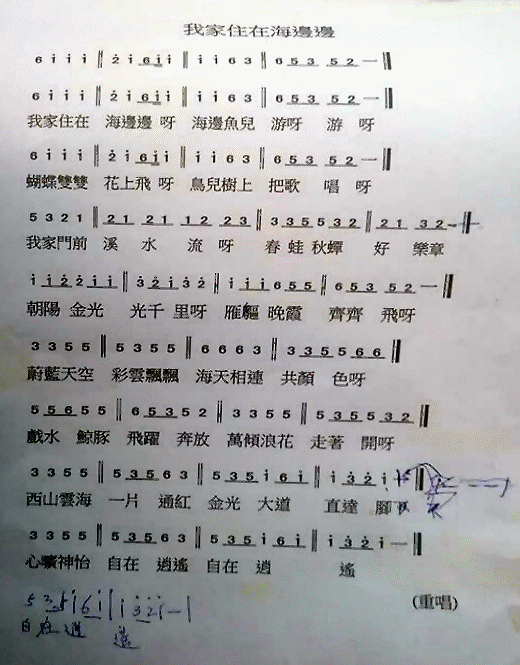 我家住在海邊邊
6 i i i ‖ 2 i 6 i i ‖ i i 6 3 ‖ 6 5 3 5 2 — ‖
6 i i i ‖ 2 i 6 i i ‖ i i 6 3 ‖ 6 5 3 5 2 — ‖
我家住在 海邊邊 呀 海邊魚兒 游呀 游 呀
6 i i i ‖ 2 i 6 i i ‖ i i 6 3 ‖ 6 5 3 5 2 — ‖
蝴蝶雙雙 花上飛 呀 鳥兒樹上 把歌 唱 呀
5 3 2 1 ‖ 2 1 2 1 1 2 2 3 ‖ 3 3 5 5 3 2 ‖ 2 1 3 2 — ‖
我家門前 溪 水 流 呀 春 蛙 秋蟬 好 樂章
i i 2 2 i i ‖ 3 2 i 3 2 ‖ i i i 6 5 5 ‖ 6 5 3 5 2 — ‖
朝陽 金光 光千 里呀 雁驅 晚霞 齊齊 飛呀
3 3 5 5 ‖ 5 3 5 5 ‖ 6 6 6 3 ‖ 3 3 5 5 6 6 ‖
蔚藍天空 彩雲飄飄 海天相連 共顏 色呀
5 5 6 5 5 ‖ 6 5 3 5 2 ‖ 5 3 5 5 ‖ 5 3 5 5 3 2 ‖
戲水 鯨豚 飛躍 奔放 萬傾浪花 走著 開呀
3 3 5 5 ‖ 5 3 5 6 3 ‖ 5 3 5 i 6 i ‖ i 3 2 i
西山雲海 一片 通紅 金光 大道 直達 腳下
3 3 5 5 ‖ 5 3 5 6 3 ‖ 5 3 5 i 6 i ‖ i 3 2 i — ‖
心曠神怡 自在 逍遙 自在 逍 遙
(重唱)
5 3 5 i 6 i ‖ i 3 2 i — |
自在 逍 遙